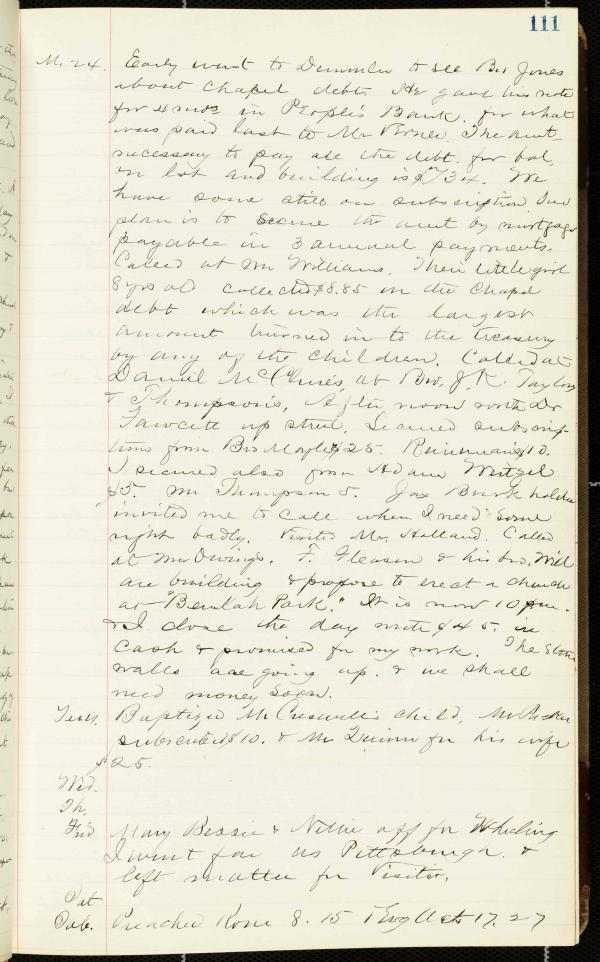 111
M. 24. Early went to Dinsmore to see Bro Jones
about Chapel debt. He gave his note
for 4 mos in People's Bank. for what
was paid last to Mr Verner. The amt
necessary to pay all the debt. for bal.
on lot and building is $734. We
have some still on subscription Our
plan is to secure the amt by mortgage
payable in 3 annual payments.
Called at Mr Williams. Their little girl
8 yrs old collected $8.85 on the Chapel
debt which was the largest
amount turned in to the treasury
by any of the children. Called at
Daniel McClure's, at Bro. J. K. Taylor's
& Thompson's. Afternoon with Dr
Fawcett up street. Secured subscrip-
tions from Bro $25. $10.
I secured also from Adam Weitzel
$5. Mr Thompson 5. Jas Burk
invited me to call when I need some
right badly. Visited Mr. Holland. Called
at Mr Owings. F. Gleason & his bro. Will
are building & propose to erect a church
at "Beulah Park." It is now 10 pm.
& I close the day with $45. in
cash & promised for my work. The stone
walls are going up. & we shall
need money soon.
Tues. Baptized McCreswell's child. Mr
subscribed $10. & Mr Quinn for his wife
$25.
Wed.
Th.
Frid Mary Bessie & Nettie off for Wheeling
I went far as Pittsburgh. &
left matter for Visitor.
Sat
Sab. Preached Rom 8. 15 & Evg Acts 17. 27